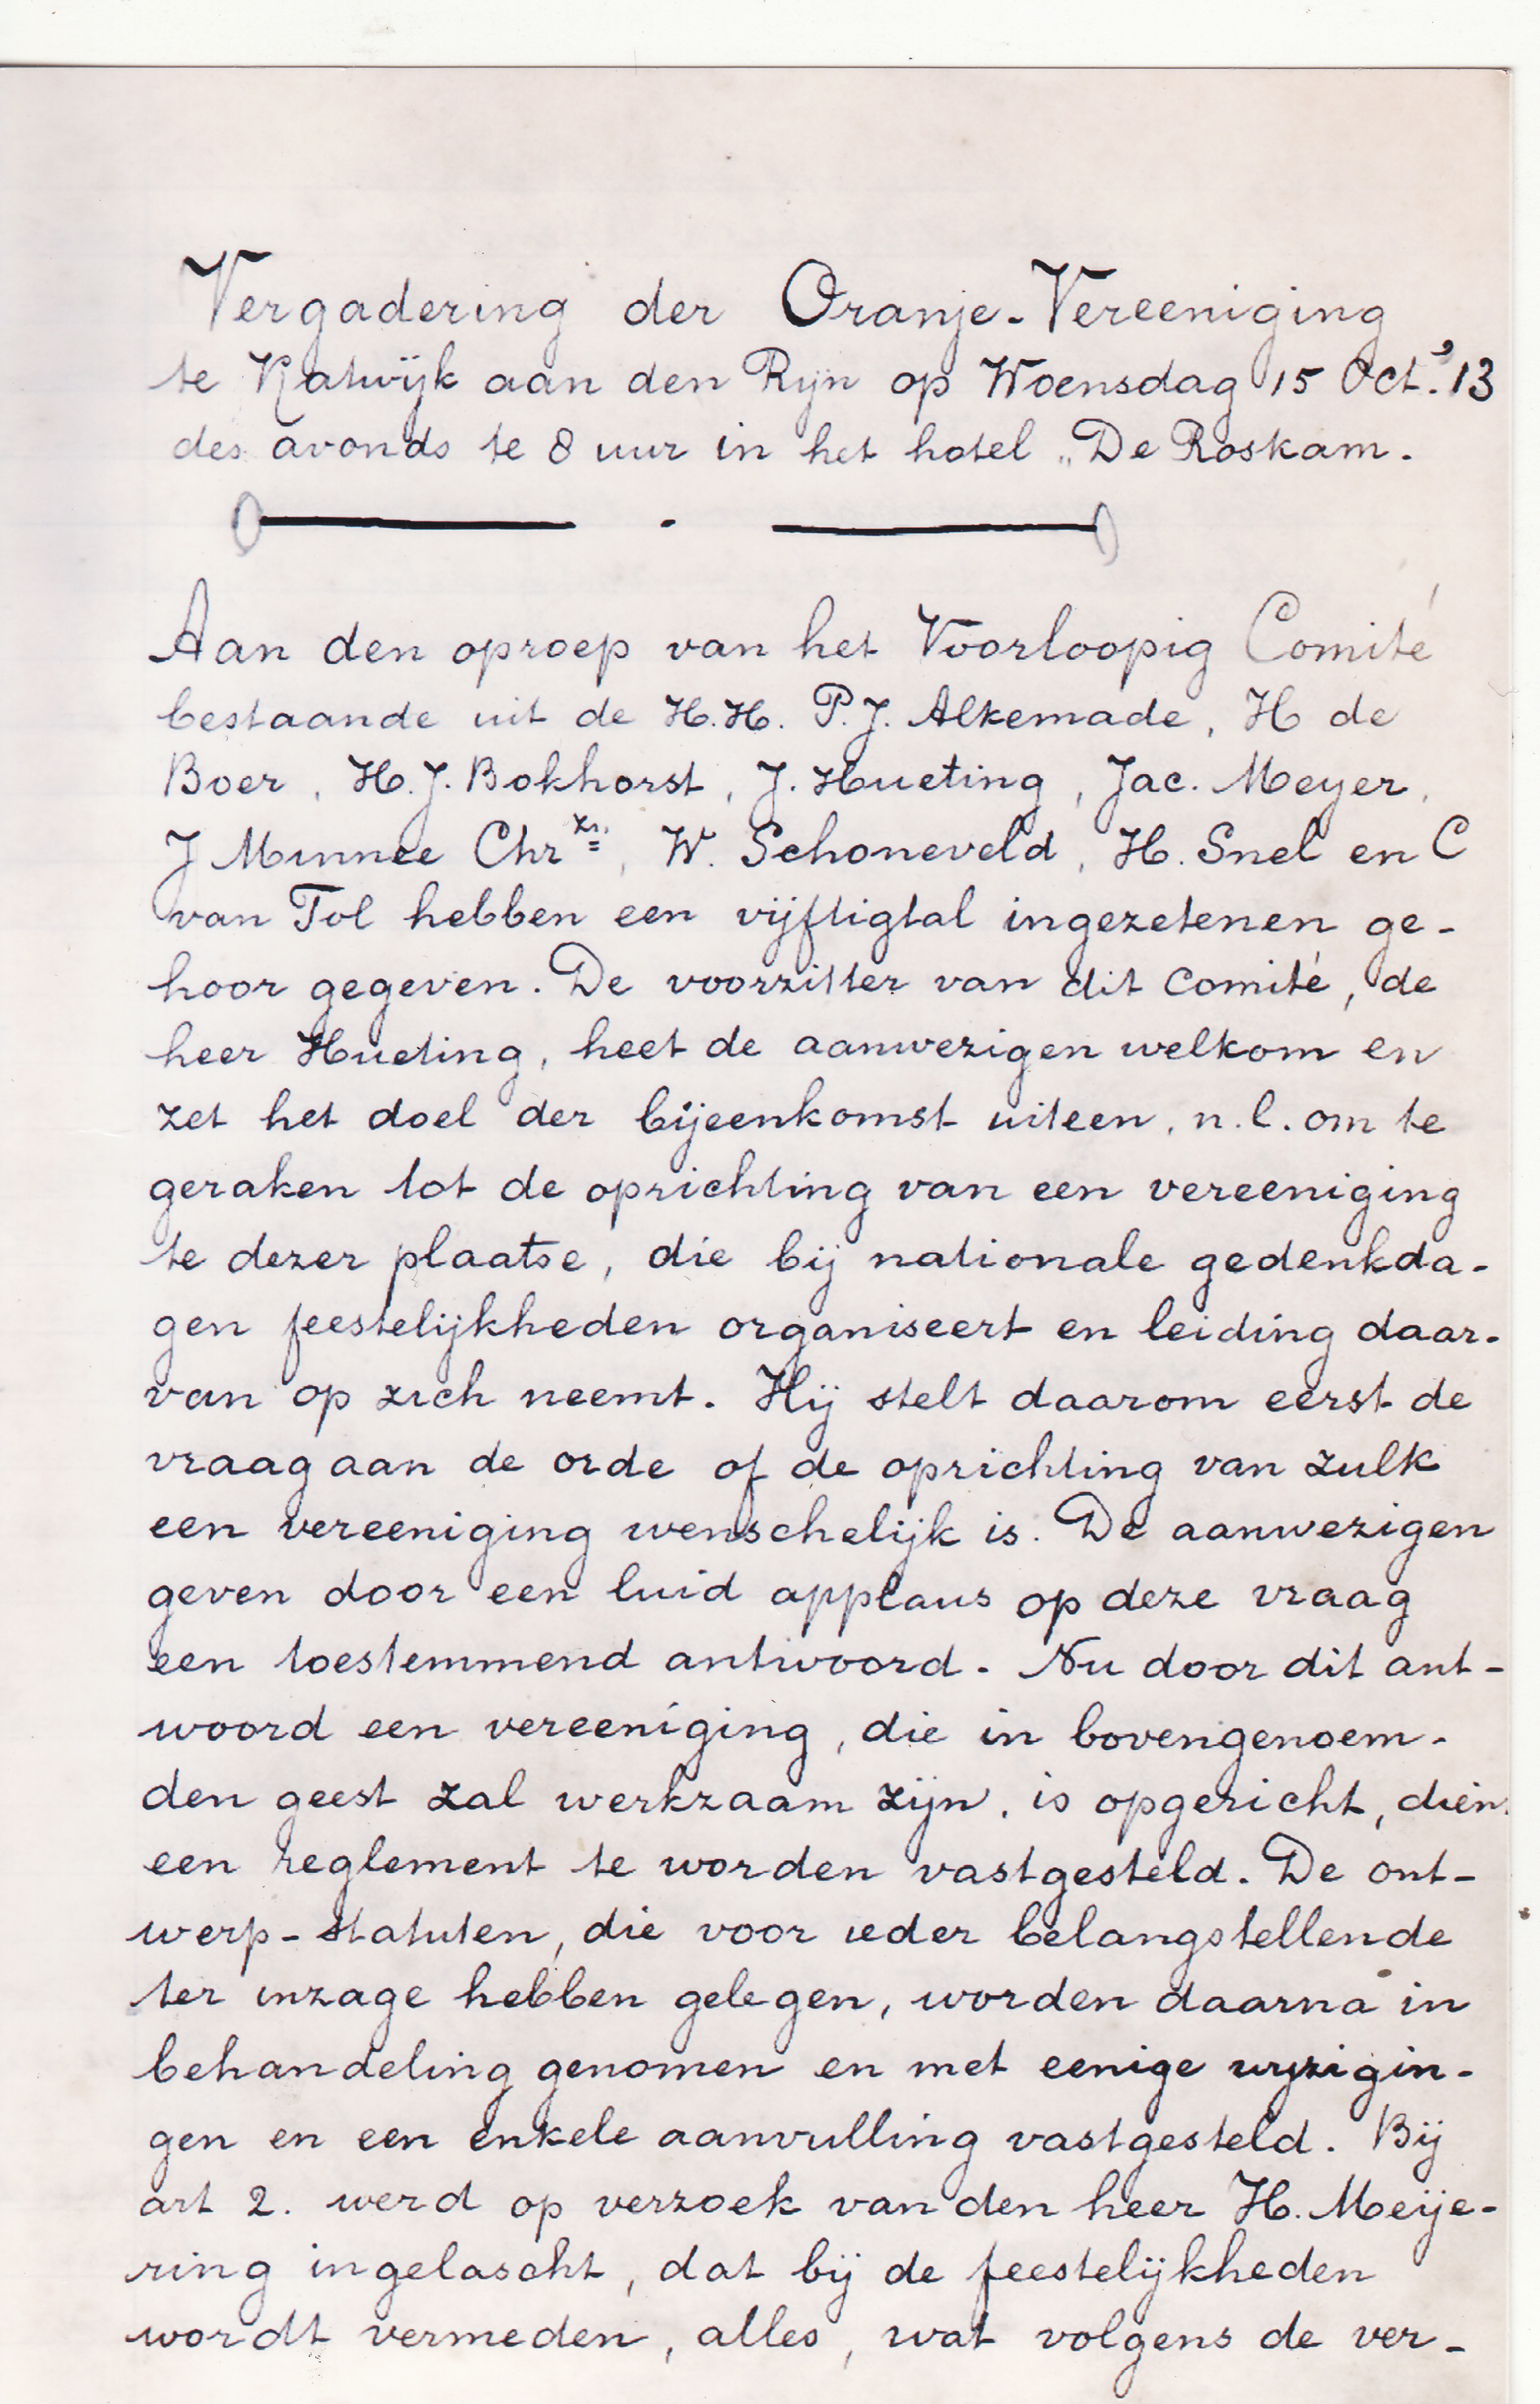 Vergadering der Oranje-Vereeniging
te Katwijk aan den Rijn op Woensdag 15 Oct. '13
des avonds te 8 uur in het hotel „De Roskam.
Aan den oproep van het Voorloopig Comité
bestaande uit de H.H. P.J. Alkemade, H de
Boer, H.J. Bokhorst, J. Hueting, Jac. Meyer,
J Minnee Chr zn., W. Schoneveld, H. Snel en C
van Tol hebben een vijftigtal ingezetenen ge-
hoor gegeven. De voorzitter van dit Comité, de
heer Hueting, heet de aanwezigen welkom en
zet het doel der bijeenkomst uiteen, n.l. om te
geraken tot de oprichting van een vereeniging
te dezer plaatse, die bij nationale gedenkda-
gen feestelijkheden organiseert en leiding daar-
van op zich neemt. Hij stelt daarom eerst de
vraag aan de orde of de oprichting van zulk
een vereeniging wenschelijk is. De aanwezigen
geven door een luid applaus op deze vraag
een toestemmend antwoord. Nu door dit ant-
woord een vereeniging, die in bovengenoem-
den geest zal werkzaam zijn, is opgericht, dien
een reglement te worden vastgesteld. De ont-
werp-statuten, die voor ieder belangstellende
ter inzage hebben gelegen, worden daarna in
behandeling genomen en met eenige wijzigin-
gen en een enkele aanvulling vastgesteld. Bij
art 2. werd op verzoek van den heer H. Meije-
ring ingelascht, dat bij de feestelijkheden
wordt vermeden, alles, wat volgens de ver-